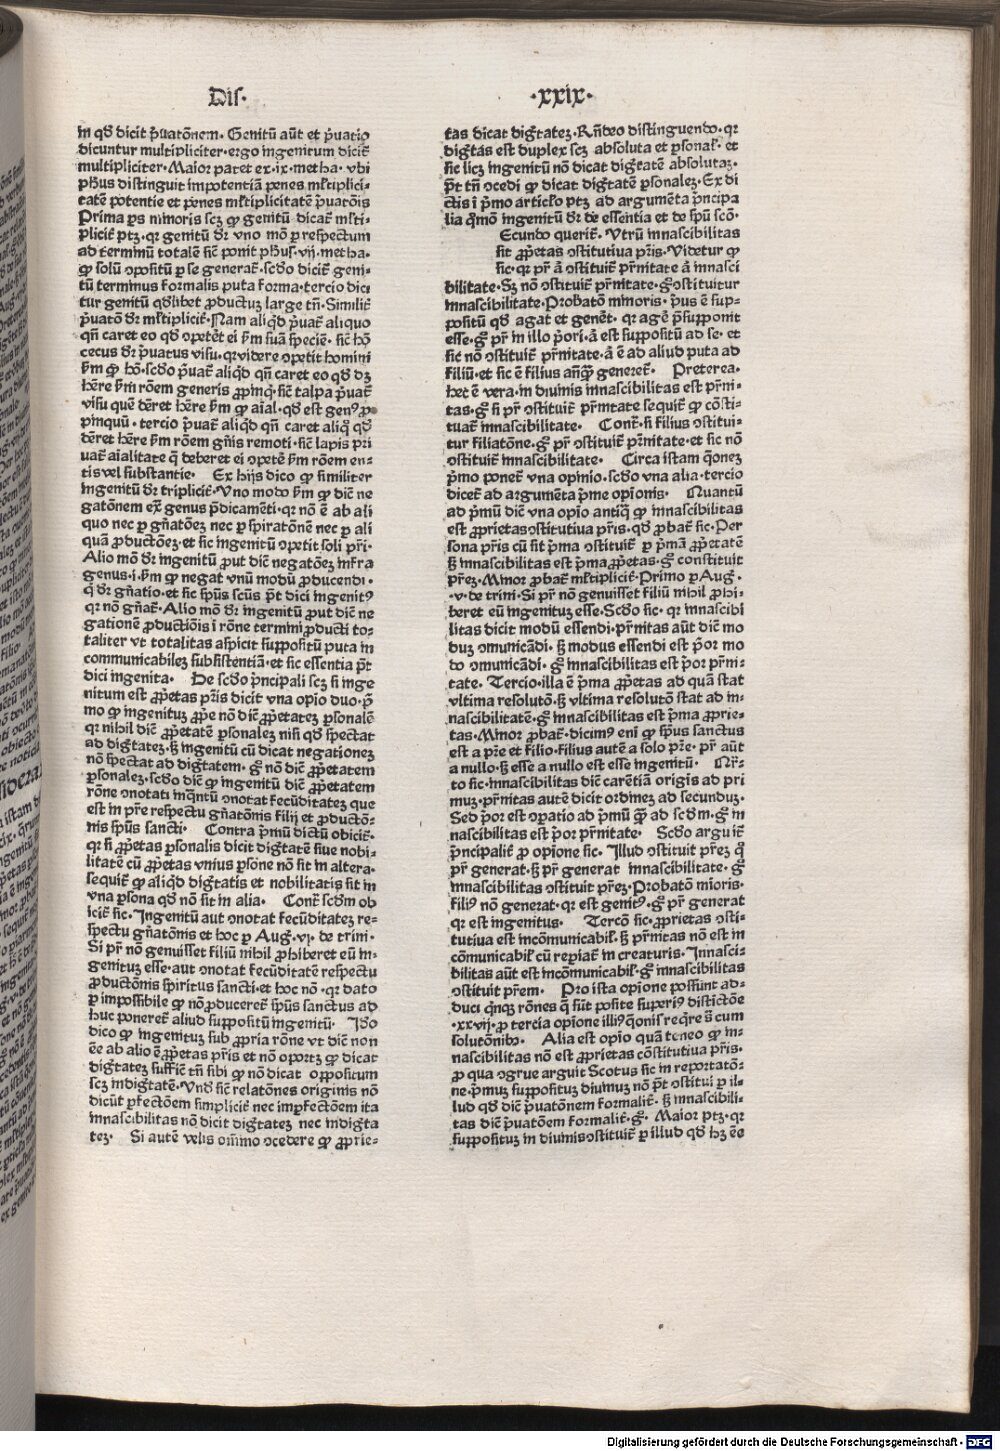 Dis·
·xxix·
in qd̄ dicit p̄uatōnem· Genitū aūt et p̄uatio
dicuntur multipliciter· ergo ingenitum dicit̄
multipliciter· Maior patet ex·ix·metha· vbi
ph̄us distinguit impotentiā penes mĺtiplici-
tatē potentie et penes mĺtiplicitatē p̄uatōis
Prima ps minoris scꝫ ꝙ genitū dicat̄ mĺti-
plicit̄ ptꝫ· qꝛ genitū dr̄ vno mō ꝑ respectum
ad terminū totalē sic̄ ponit ph̄us·vij·metha·
ꝙ solū ɔpositū ꝑ se generat̄· scd̄o dicit̄ geni-
tū terminus formalis puta forma· tercio dici
tur genitū qd̄libet ꝓductuꝫ large tn̄· Similit̄
p̄uatō dr̄ mĺtiplicit̄· Nam aliqd̄ p̄uat̄ aliquo
qn̄ caret eo qd̄ ɔpetēt ei s̄m suā speciē· sic̄ hō
cecus dr̄ p̄uatus visu· qꝛ videre ɔpetit homini
s̄m ꝙ hō· scd̄o p̄uat̄ aliqd̄ qn̄ caret eo qd̄ dꝫ
hēre s̄m rōem generis ꝓpinq̄· sic̄ talpa p̄uat̄
visu quē dēret hēre s̄m ꝙ aīal· qd̄ est genꝰ ꝓ
pinquū· tercio p̄uat̄ aliqd̄ qn̄ caret aliq̄ qd̄
dēret hēre s̄m rōem gn̄is remoti· sic̄ lapis pri
uat̄ aialitate q̄ deberet ei ɔpetē s̄m rōem en-
tis vel substantie· Ex hijs dico ꝙ similiter
ingenitū dr̄ triplicit̄· Vno modo s̄m ꝙ diē ne
gatōnem ext̄ genus p̄dicamēti· qꝛ nō ē ab ali
quo nec ꝑ gn̄atōeꝫ nec ꝑ spiratōnē nec ꝑ ali
quā ꝓductōeꝫ· et sic ingenitū ɔpetit soli pr̄i·
Alio mō dr̄ ingenitū ꝓut diē negatōeꝫ infra
genus·i·s̄m ꝙ negat vnū modū ꝓducendi·
q̄ dr̄ gn̄atio· et sic sp̄us scūs pt̄ dici ingenitꝰ
qꝛ nō gn̄at̄· Alio mō dr̄ ingenitū ꝓut diē ne
gationē ꝓductiōis ī rōne termini ꝓducti to-
taliter vt totalitas aspicit suppositū puta in
communicabileꝫ subsistentiā· et sic essentia pt̄
dici ingenita· De scd̄o p̄ncipali scꝫ si inge
nitum est ꝓpetas pr̄is dicit vna opio duo· p̄
mo ꝙ ingenituꝫ ꝓpe nō diē ꝓpetateꝫ ꝑsonalē
qꝛ nihil diē ꝓpetatē ꝑsonaleꝫ nisi qd̄ spectat
ad digtateꝫ· sꝫ ingenitū cū dicat negationeꝫ
nō spectat ad digtatem· gͦ nō diē ꝓpetatem
ꝑsonaleꝫ· scd̄o diē ꝙ ingenitū diē ꝓpetatem
rōne ɔnotati inq̄ntū ɔnotat fecūditateꝫ que
est in pr̄e respectu gn̄atōnis filij et ꝓductō-
nis sp̄us sancti· Contra p̄mū dictū obicit̄·
qꝛ si ꝓpetas ꝑsonalis dicit digtatē siue nobi-
litatē cū ꝓpetas vnius ꝑsone nō sit in altera·
sequit̄ ꝙ aliqd̄ digtatis et nobilitatis sit in
vna ꝑsona qd̄ nō sit in alia· Contr̄ scd̄m ob
icit̄ sic· Ingenitū aut ɔnotat fecūditateꝫ re-
spectu gn̄atōnis et hoc ꝑ Auḡ·vj·de trini·
Si pr̄ nō genuisset filiū nihil ꝓhiberet eū in-
genituꝫ esse· aut ɔnotat fecūditatē respectu
ꝓductōnis spiritus sancti· et hoc nō· qꝛ dato
ꝑ impossibile ꝙ nō ꝓduceret̄ sp̄us sanctus ad
huc poneret̄ aliud suppositū ingenitū· Id̄o
dico ꝙ ingenituꝫ sub ꝓpria rōne vt diē non
ēe ab alio ē ꝓpetas pr̄is et nō oportꝫ ꝙ dicat
digtateꝫ suffic̄ tn̄ sibi ꝙ nō dicat oppositum
scꝫ indigtatē· Vnd̄ sic̄ relatōnes originis nō
dicūt ꝑfectōem simplicit̄ nec imꝑfectōem ita
innascibilitas nō dicit digtateꝫ nec indigta
teꝫ· Si autē velis oīmo ɔcedere ꝙ ꝓprie-
tas dicat digtateꝫ· Rn̄deo distinguendo· qꝛ
digtas est duplex scꝫ absoluta et ꝑsonal̄· et
sic licꝫ ingenitū nō dicat digtatē absolutaꝫ·
pt̄ tn̄ ɔcedi ꝙ dicat digtatē ꝑsonaleꝫ· Ex di
ctis ī p̄mo articĺo ptꝫ ad argumēta p̄ncipa
lia qūo ingenitū dr̄ de essentia et de sp̄u scō·
Ecundo querit̄· Vtrū innascibilitas
sit ꝓpetas ɔstitutiua pr̄is· Videtur ꝙ
sic· qꝛ pr̄ ā ɔstituit̄ pr̄nitate ā innasci
bilitate· Sꝫ nō ɔstituit̄ pr̄nitate· gͦ ɔstituitur
innascibilitate· Probatō minoris· p̄us ē sup-
positū qd̄ agat et genēt· qꝛ agē p̄supponit
esse· gͦ pr̄ in illo p̄ori· ā est suppositū ad se· et
sic nō ɔstituit̄ pr̄nitate· ā ē ad aliud puta ad
filiū· et sic ē filius anq̄ꝫ generet̄· Preterea·
hec ē vera· in diuinis innascibilitas est pr̄ni-
tas· gͦ si pr̄ ɔstituit̄ pr̄nitate sequit̄ ꝙ cōsti-
tuat̄ innascibilitate· Contr̄· si filius ɔstitui-
tur filiatōne· gͦ pr̄ ɔstituit̄ pr̄nitate· et sic nō
ɔstituit̄ innascibilitate· Circa istam qōneꝫ
p̄mo ponet̄ vna opinio· scd̄o vna alia· tercio
dicet̄ ad argumēta p̄me opiōnis· Quantū
ad p̄mū diē vna opio antiq̄ ꝙ innascibilitas
est ꝓprietas ɔstitutiua pr̄is· qd̄ ꝓbat̄ sic· Per
sona pr̄is cū sit p̄ma ɔstituit̄ ꝑ p̄mā ꝓpetatē
sꝫ innascibilitas est p̄ma ꝓpetas· gͦ constituit
pr̄eꝫ· Minor ꝓbat̄ mĺtiplicit̄· Primo ꝑ Auḡ·
·v·de trini· Si pr̄ nō genuisset filiū nihil ꝓhi-
beret eū ingenituꝫ esse· Scd̄o sic· qꝛ innascibi
litas dicit modū essendi· pr̄nitas aūt diē mo
duꝫ ɔmunicādi· sꝫ modus essendi est p̄or mo
do ɔmunicādi· gͦ innascibilitas est p̄or pr̄ni-
tate· Tercio· illa ē p̄ma ꝓpetas ad quā stat
vltima resolutō· sꝫ vltima resolutō stat ad in-
nascibilitatē· gͦ innascibilitas est p̄ma ꝓprie-
tas· Minor ꝓbat̄· dicimꝰ eni ꝙ sp̄us sanctus
est a pr̄e et filio· filius autē a solo pr̄e· pr̄ aūt
a nullo· sꝫ esse a nullo est esse ingenitū· Qr̄-
to sic· innascibilitas diē carētiā origis ad pri
muꝫ· pr̄nitas autē dicit ordineꝫ ad secunduꝫ·
Sed p̄or est ɔpatio ad p̄mū qꝫ ad scd̄m· gͦ in
nascibilitas est p̄or pr̄nitate· Scd̄o arguit̄
p̄ncipalit̄ ꝓ opione sic· Illud ɔstituit pr̄eꝫ q̄
pr̄ generat· sꝫ pr̄ generat innascibilitate· gͦ
innascibilitas ɔstituit pr̄eꝫ· Probatō mīoris·
filiꝰ nō generat· qꝛ est genitꝰ· gͦ pr̄ generat
qꝛ est ingenitus· Tercō sic· ꝓprietas ɔsti-
tutiua est incōmunicabil̄· sꝫ pr̄nitas nō est in
cōmunicabil̄ cū reꝑiat̄ in creaturis· Innasci-
bilitas aūt est incōmunicabil̄· gͦ innascibilitas
ɔstituit pr̄em· Pro ista opione possunt ad-
duci q̄nqꝫ rōnes q̄ sūt posite superiꝰ distictōe
·xxvij· ꝓ tercia opione illiꝰ qōnis reqr̄e ꝫ cum
solutōnibꝫ· Alia est opio quā teneo ꝙ in-
nascibilitas nō est ꝓprietas cōstitutiua pr̄is·
ꝓ qua ɔgrue arguit Scotus sic in reportatō-
ne· p̄muꝫ suppositū diuinuꝫ nō pt̄ ɔstitui ꝑ il-
lud qd̄ diē p̄uatōnem formalit̄· sꝫ innascibili-
tas diē p̄uatōem formalit̄· gͦ· Maior ptꝫ· qꝛ
suppositū in diuinis ɔstituit̄ ꝑ illud qd̄ hꝫ ēe
Digitalisierung gefördert durch die Deutsche Forschungsgemeinschaft · DFG